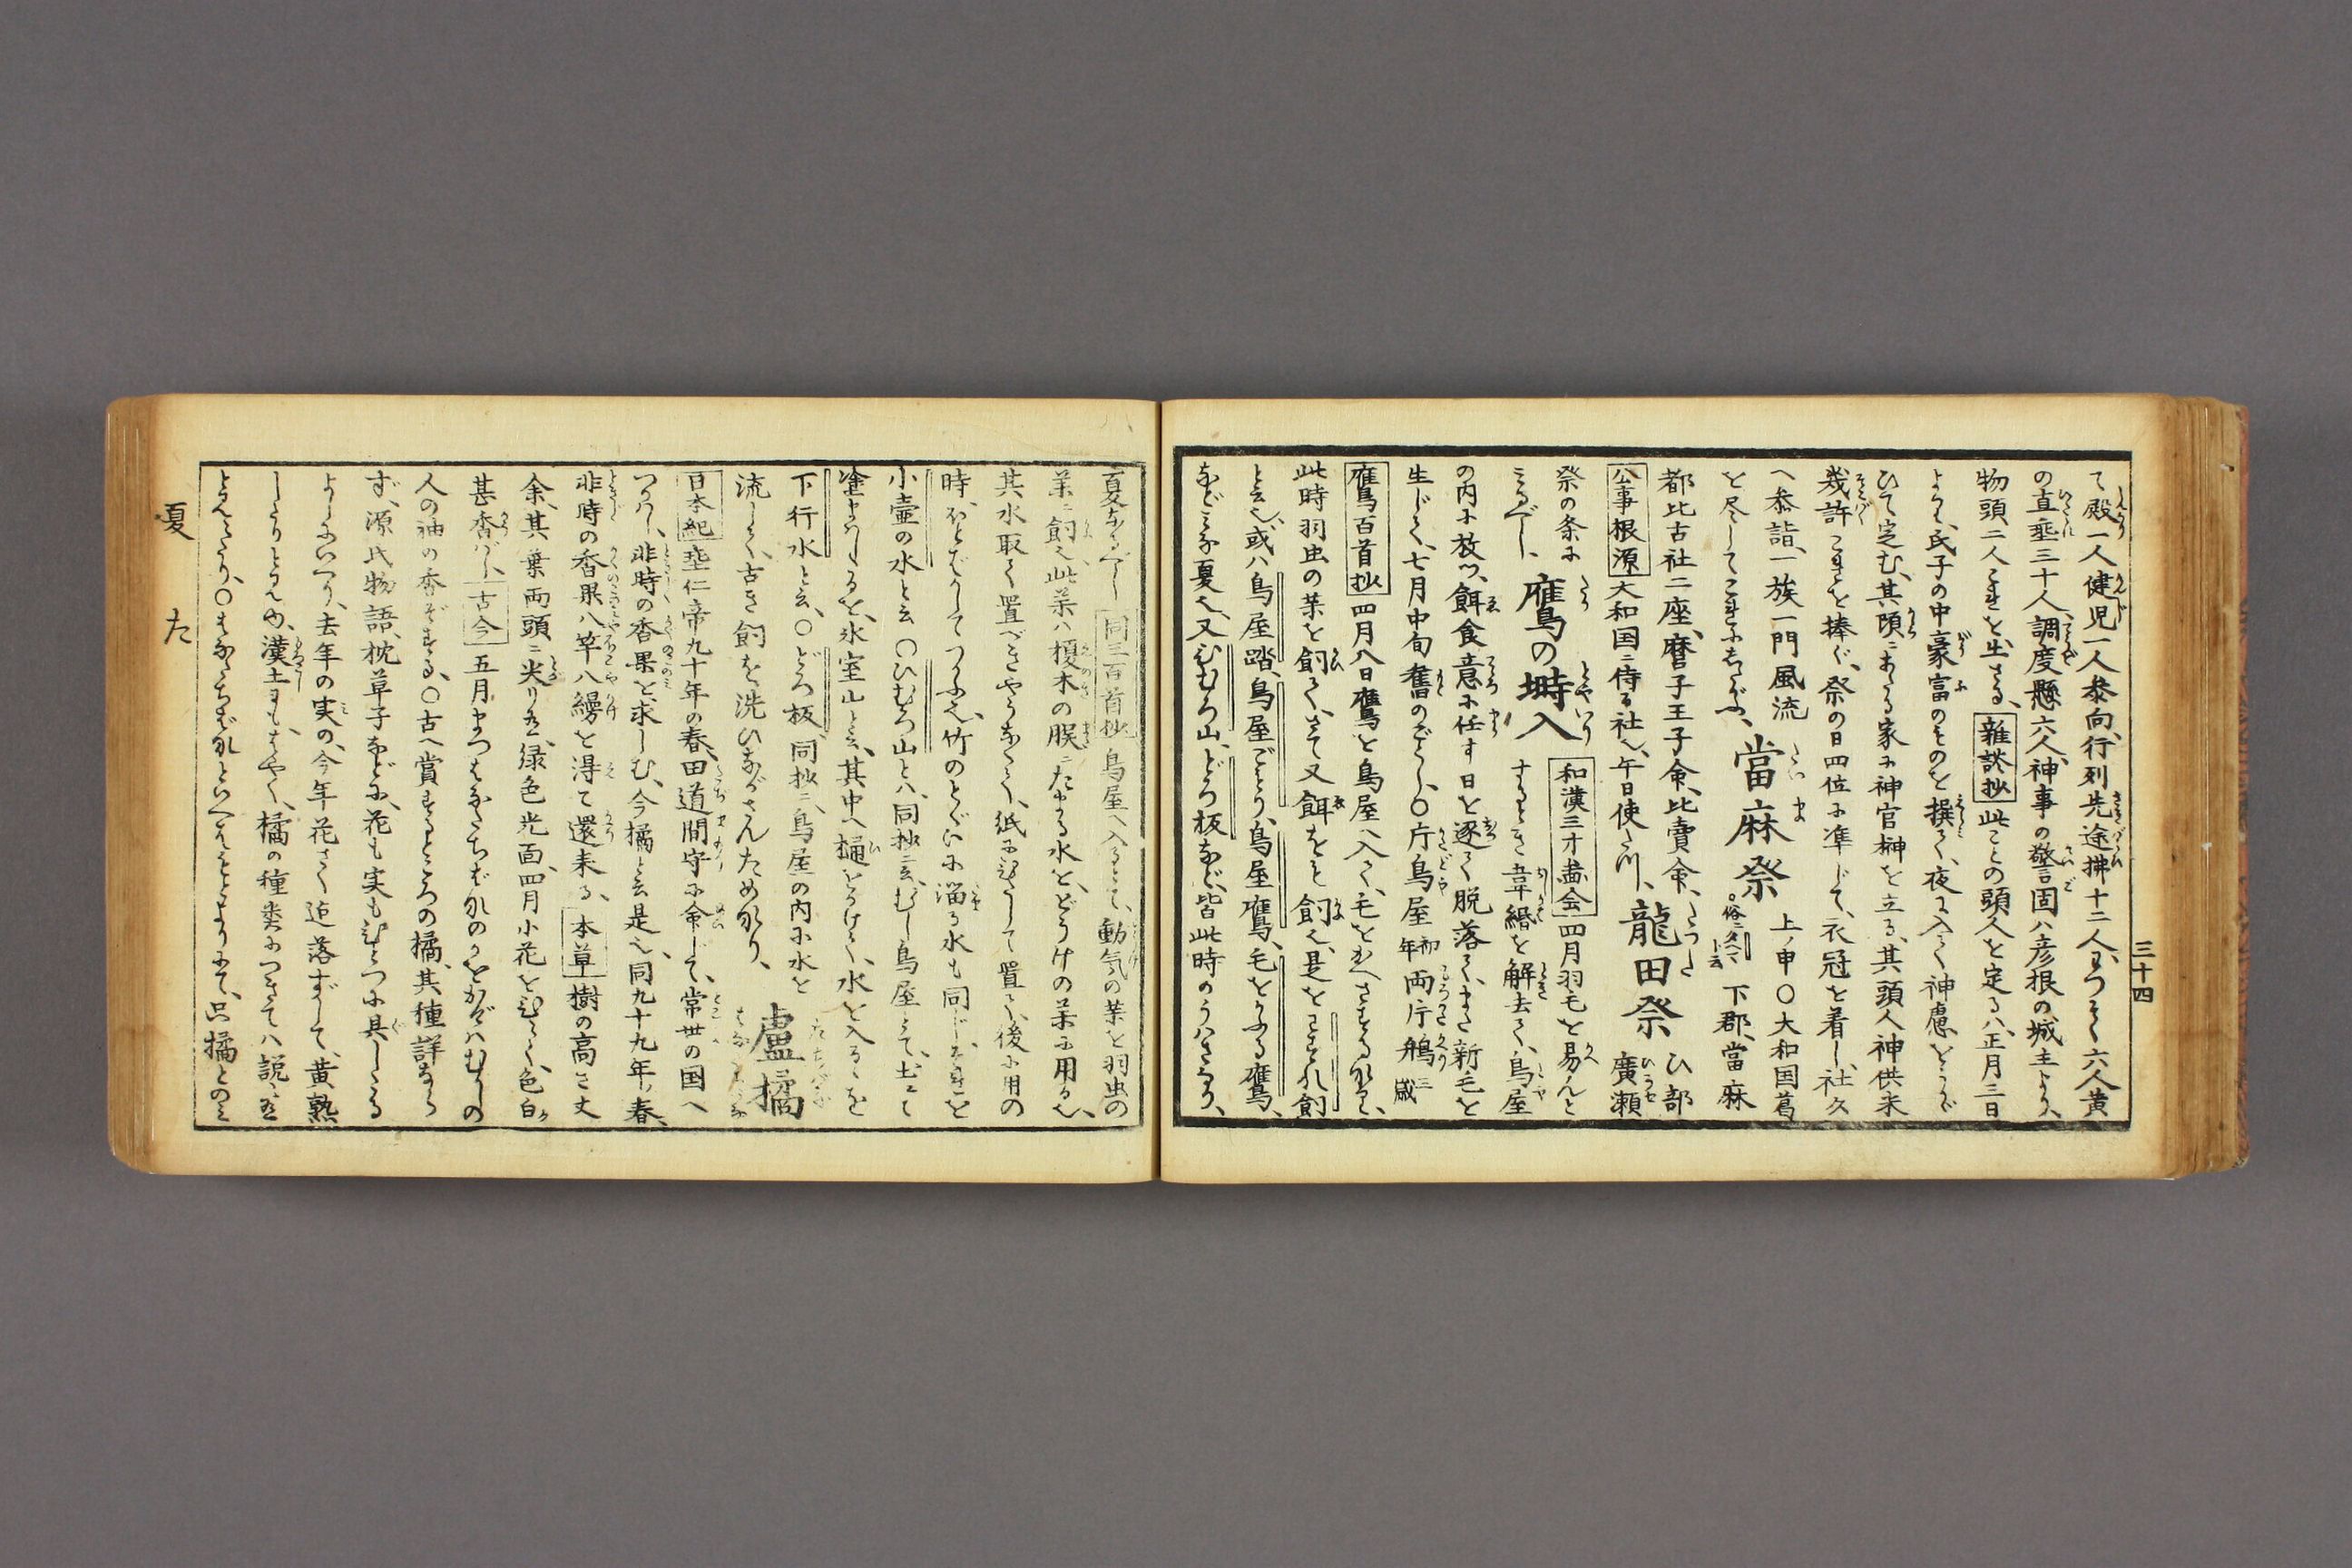 三十四
て殿一人健児一人参向、行列先途拂十二人、わつそく六人黄
の直垂三十人、調度懸六人、神事の警固ハ彦根の城主より、
物頭二人これを出さる、雑談抄 此ことの頭人を定るハ、正月三日
よりて、氏子の中豪富のものを撰て、夜に入て神慮をうかゞ
ひて定む、其頭にあたる家に神官榊を立る、其頭人神供米
幾許これを捧ぐ、祭の日四位に準じて、衣冠を着し、社久
へ参詣、一族一門風流
を尽してこれにあそぶ、
當麻祭
上ノ申〇大和国葛
下郡、當麻
都比古社二座、麿子王子命、比賣命、
公事根源 大和国ニ侍る社也、午日使立
龍田祭
ひ部
廣瀬
祭の条に
みるべし、
鷹の塒入
和漢三才圖会 四月羽毛を易んと
するとき韋緡を解去て、鳥屋
の内に放つ、餌食意に任す日を逐て脱落て、また新毛を
生じて、七月中旬舊のごとし、〇片鳥屋 初年 両片鵃 三歳
鷹百首抄 四月八日鷹を鳥屋へ入て、毛をかへさする
此時羽虫の薬を飼て、さて又餌をを飼也、是を
と云也、或ハ鳥屋踏、鳥屋ごもり、鳥屋鷹、毛をかふる鷹、
などミな夏也、又ひむろ山、どろ板など、皆此時のうハさなり、
夏なるべし 同三百首抄 鳥屋へ入るとて、動気の薬を羽虫の
薬ニ飼也、此薬ハ榎木の朠ニたまる水を、どうけの薬に用る也、
其水取て置べきやうなくて、紙にひたして置て、後に用の
時、ほとばかしてつかふ也、竹のとぐいに溜る水も同じ、是を
小壷の水と云 〇ひむろ山とハ、同抄ニ云、むし鳥屋とて、土にて
塗まハしたるを、氷室山と云、其中へ樋をかけて、水を入るゝを
下行水と云、〇どろ板、同抄ニ、鳥屋の内に水を
流して、古き飼を洗ひながさんため也、
盧橘
日本紀 垂仁帝九十年の春、田道間守に命じて、常世の国へ
つかハし、非時の香果を求しむ、今橘と云是也、同九十九年、春、
非時の香果八竿八縵を得て還来る、本草 樹の高さ丈
余、其葉両頭ニ尖り、緑色光面、四月小花をひらく、色白ク
甚香ばし、古今 五月まつはなたちばなのかをかげバむかしの
人の袖の香ぞする、〇古へ賞するところの橘、其種詳なら
ず、源氏物語、枕草子などに、花も実もひとつに具したる
よしいへり、去年の実の、今年花さく迄落ずして、黄熟
したりと見ゆ、漢土にも、はやく、橘の種類につきてハ説々
とミえたり、〇はなたちばなといへるをことよりにて、只橘とのミ
夏
た